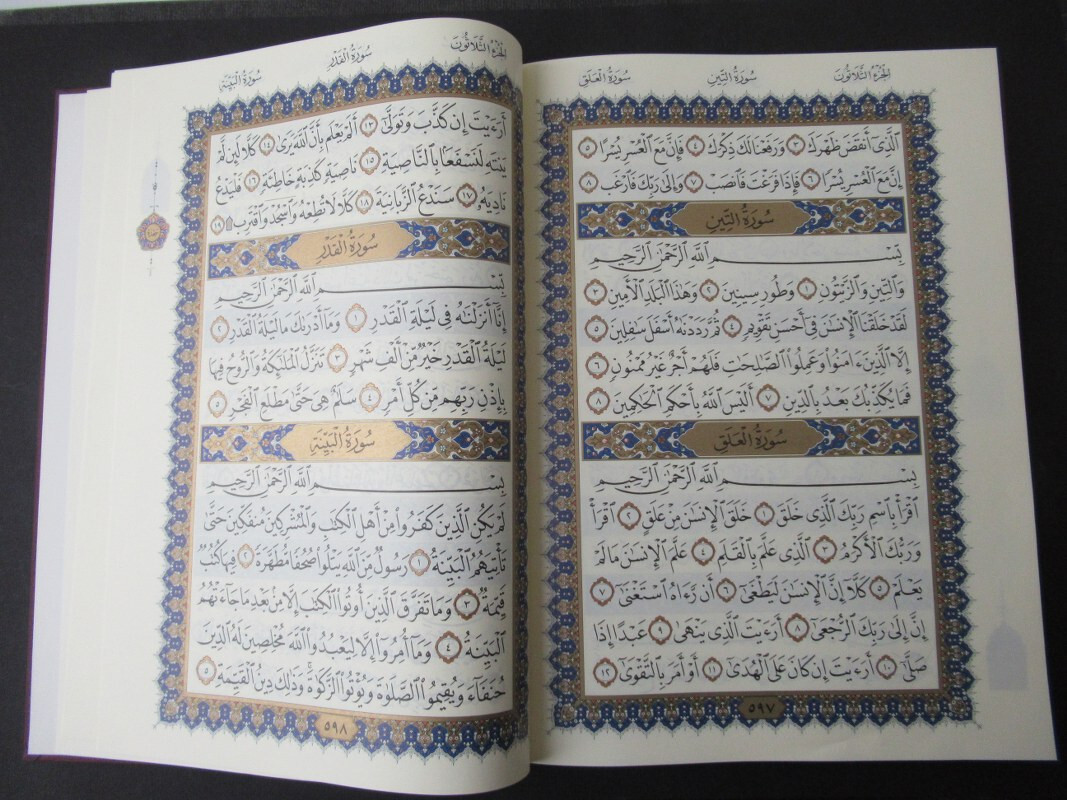 الجزء الثلاثون
سورة التين
سورة العلق
ٱلَّذِىٓ أَنقَضَ ظَهْرَكَ ٣ وَرَفَعْنَا لَكَ ذِكْرَكَ ٤ فَإِنَّ مَعَ ٱلْعُسْرِ يُسْرًا ٥
إِنَّ مَعَ ٱلْعُسْرِ يُسْرًا ٦ فَإِذَا فَرَغْتَ فَٱنصَبْ ٧ وَإِلَىٰ رَبِّكَ فَٱرْغَب ٨
سُورَةُ التِّينِ
بِسْمِ ٱللَّهِ ٱلرَّحْمَٰنِ ٱلرَّحِيمِ
وَٱلتِّينِ وَٱلزَّيْتُونِ ١ وَطُورِ سِينِينَ ٢ وَهَٰذَا ٱلْبَلَدِ ٱلْأَمِينِ ٣
لَقَدْ خَلَقْنَا ٱلْإِنسَٰنَ فِىٓ أَحْسَنِ تَقْوِيمٍ ٤ ثُمَّ رَدَدْنَٰهُ أَسْفَلَ سَٰفِلِينَ ٥
إِلَّا ٱلَّذِينَ ءَامَنُوا۟ وَعَمِلُوا۟ ٱلصَّٰلِحَٰتِ فَلَهُمْ أَجْرٌ غَيْرُ مَمْنُونٍ ٦
فَمَا يُكَذِّبُكَ بَعْدُ بِٱلدِّينِ ٧ أَلَيْسَ ٱللَّهُ بِأَحْكَمِ ٱلْحَٰكِمِينَ ٨
سُورَةُ الْعَلَقِ
بِسْمِ ٱللَّهِ ٱلرَّحْمَٰنِ ٱلرَّحِيمِ
ٱقْرَأْ بِٱسْمِ رَبِّكَ ٱلَّذِى خَلَقَ ١ خَلَقَ ٱلْإِنسَٰنَ مِنْ عَلَقٍ ٢ ٱقْرَأْ
وَرَبُّكَ ٱلْأَكْرَمُ ٣ ٱلَّذِى عَلَّمَ بِٱلْقَلَمِ ٤ عَلَّمَ ٱلْإِنسَٰنَ مَا لَمْ
يَعْلَمْ ٥ كَلَّآ إِنَّ ٱلْإِنسَٰنَ لَيَطْغَىٰٓ ٦ أَن رَّءَاهُ ٱسْتَغْنَىٰٓ ٧
إِنَّ إِلَىٰ رَبِّكَ ٱلرُّجْعَىٰٓ ٨ أَرَءَيْتَ ٱلَّذِى يَنْهَىٰ ٩ عَبْدًا إِذَا
صَلَّىٰٓ ١٠ أَرَءَيْتَ إِن كَانَ عَلَى ٱلْهُدَىٰٓ ١١ أَوْ أَمَرَ بِٱلتَّقْوَىٰٓ ١٢
٥٩٧
الجزء الثلاثون
سورة القدر
سورة البينة
أَرَءَيْتَ إِن كَذَّبَ وَتَوَلَّىٰٓ ١٣ أَلَمْ يَعْلَم بِأَنَّ ٱللَّهَ يَرَىٰ ١٤ كَلَّا لَئِن لَّمْ
يَنتَهِ لَنَسْفَعًۢا بِٱلنَّاصِيَةِ ١٥ نَاصِيَةٍ كَٰذِبَةٍ خَاطِئَةٍ ١٦ فَلْيَدْعُ
نَادِيَهُۥ ١٧ سَنَدْعُ ٱلزَّبَانِيَةَ ١٨ كَلَّا لَا تُطِعْهُ وَٱسْجُدْ وَٱقْتَرِب ۩ ١٩
سُورَةُ الْقَدْرِ
بِسْمِ ٱللَّهِ ٱلرَّحْمَٰنِ ٱلرَّحِيمِ
إِنَّآ أَنزَلْنَٰهُ فِى لَيْلَةِ ٱلْقَدْرِ ١ وَمَآ أَدْرَىٰكَ مَا لَيْلَةُ ٱلْقَدْرِ ٢
لَيْلَةُ ٱلْقَدْرِ خَيْرٌ مِّنْ أَلْفِ شَهْرٍ ٣ تَنَزَّلُ ٱلْمَلَٰٓئِكَةُ وَٱلرُّوحُ فِيهَا
بِإِذْنِ رَبِّهِم مِّن كُلِّ أَمْرٍ ٤ سَلَٰمٌ هِىَ حَتَّىٰ مَطْلَعِ ٱلْفَجْرِ ٥
سُورَةُ الْبَيِّنَةِ
بِسْمِ ٱللَّهِ ٱلرَّحْمَٰنِ ٱلرَّحِيمِ
لَمْ يَكُنِ ٱلَّذِينَ كَفَرُوا۟ مِنْ أَهْلِ ٱلْكِتَٰبِ وَٱلْمُشْرِكِينَ مُنفَكِّينَ حَتَّىٰ
تَأْتِيَهُمُ ٱلْبَيِّنَةُ ١ رَسُولٌ مِّنَ ٱللَّهِ يَتْلُوا۟ صُحُفًا مُّطَهَّرَةً ٢ فِيهَا كُتُبٌ
قَيِّمَةٌ ٣ وَمَا تَفَرَّقَ ٱلَّذِينَ أُوتُوا۟ ٱلْكِتَٰبَ إِلَّا مِنۢ بَعْدِ مَا جَآءَتْهُمُ
ٱلْبَيِّنَةُ ٤ وَمَآ أُمِرُوٓا۟ إِلَّا لِيَعْبُدُوا۟ ٱللَّهَ مُخْلِصِينَ لَهُ ٱلدِّينَ
حُنَفَآءَ وَيُقِيمُوا۟ ٱلصَّلَوٰةَ وَيُؤْتُوا۟ ٱلزَّكَوٰةَ ۚ وَذَٰلِكَ دِينُ ٱلْقَيِّمَةِ ٥
٥٩٨